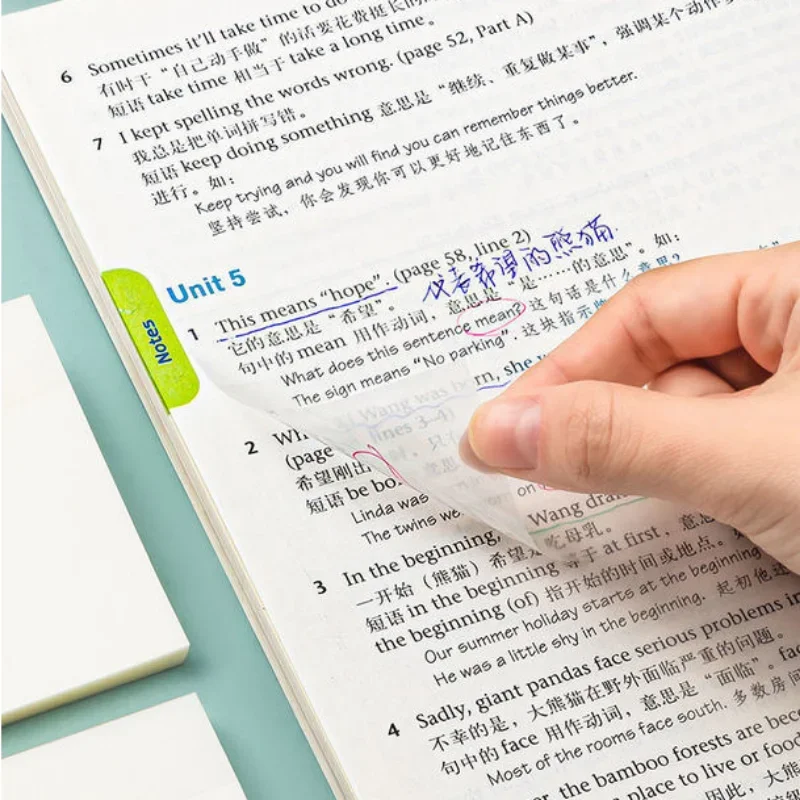 6 Sometimes it'll take time to do
有时干“自己动手做”的活要花费挺长的
短语 take time 相当于 take a long time。
7 I kept spelling the words wrong. (page 52, Part A)
我总是把单词拼写错。
短语 keep doing something 意思是“继续、重复做某事”，强调某个动作
进行。如：
Keep trying and you will find you can remember things better.
坚持尝试，你会发现你可以更好地记住东西了。
Unit 5
Notes
代表希望的熊猫
1 This means “hope”. (page 58, line 2)
它的意思是“希望”。
句中的 mean 用作动词，意思是“是……的意思”。如：
What does this sentence mean? 这句话是什么意思？
The sign means “No parking”. 这块指示
2 Wh Wang was born, she w
(page lines 3–4)
希望刚出 时，只
短语 be bo 意思
Linda was on
The twins we
Wang dran
吃母乳。
3 In the beginning,
一开始（熊猫）希望
短语 in the beginning 等于 at first，意思
the beginning (of) 指开始的时间或地点。如
Our summer holiday starts at the beginning
He was a little shy in the beginning. 起初他
4 Sadly, giant pandas face serious problems in
不幸的是，大熊猫在野外面临严重的问题。
句中的 face 用作动词，意思是“面临”。fac
Most of the rooms face south. 多数房间
the bamboo forests are beco
place to live or food
因此，大熊